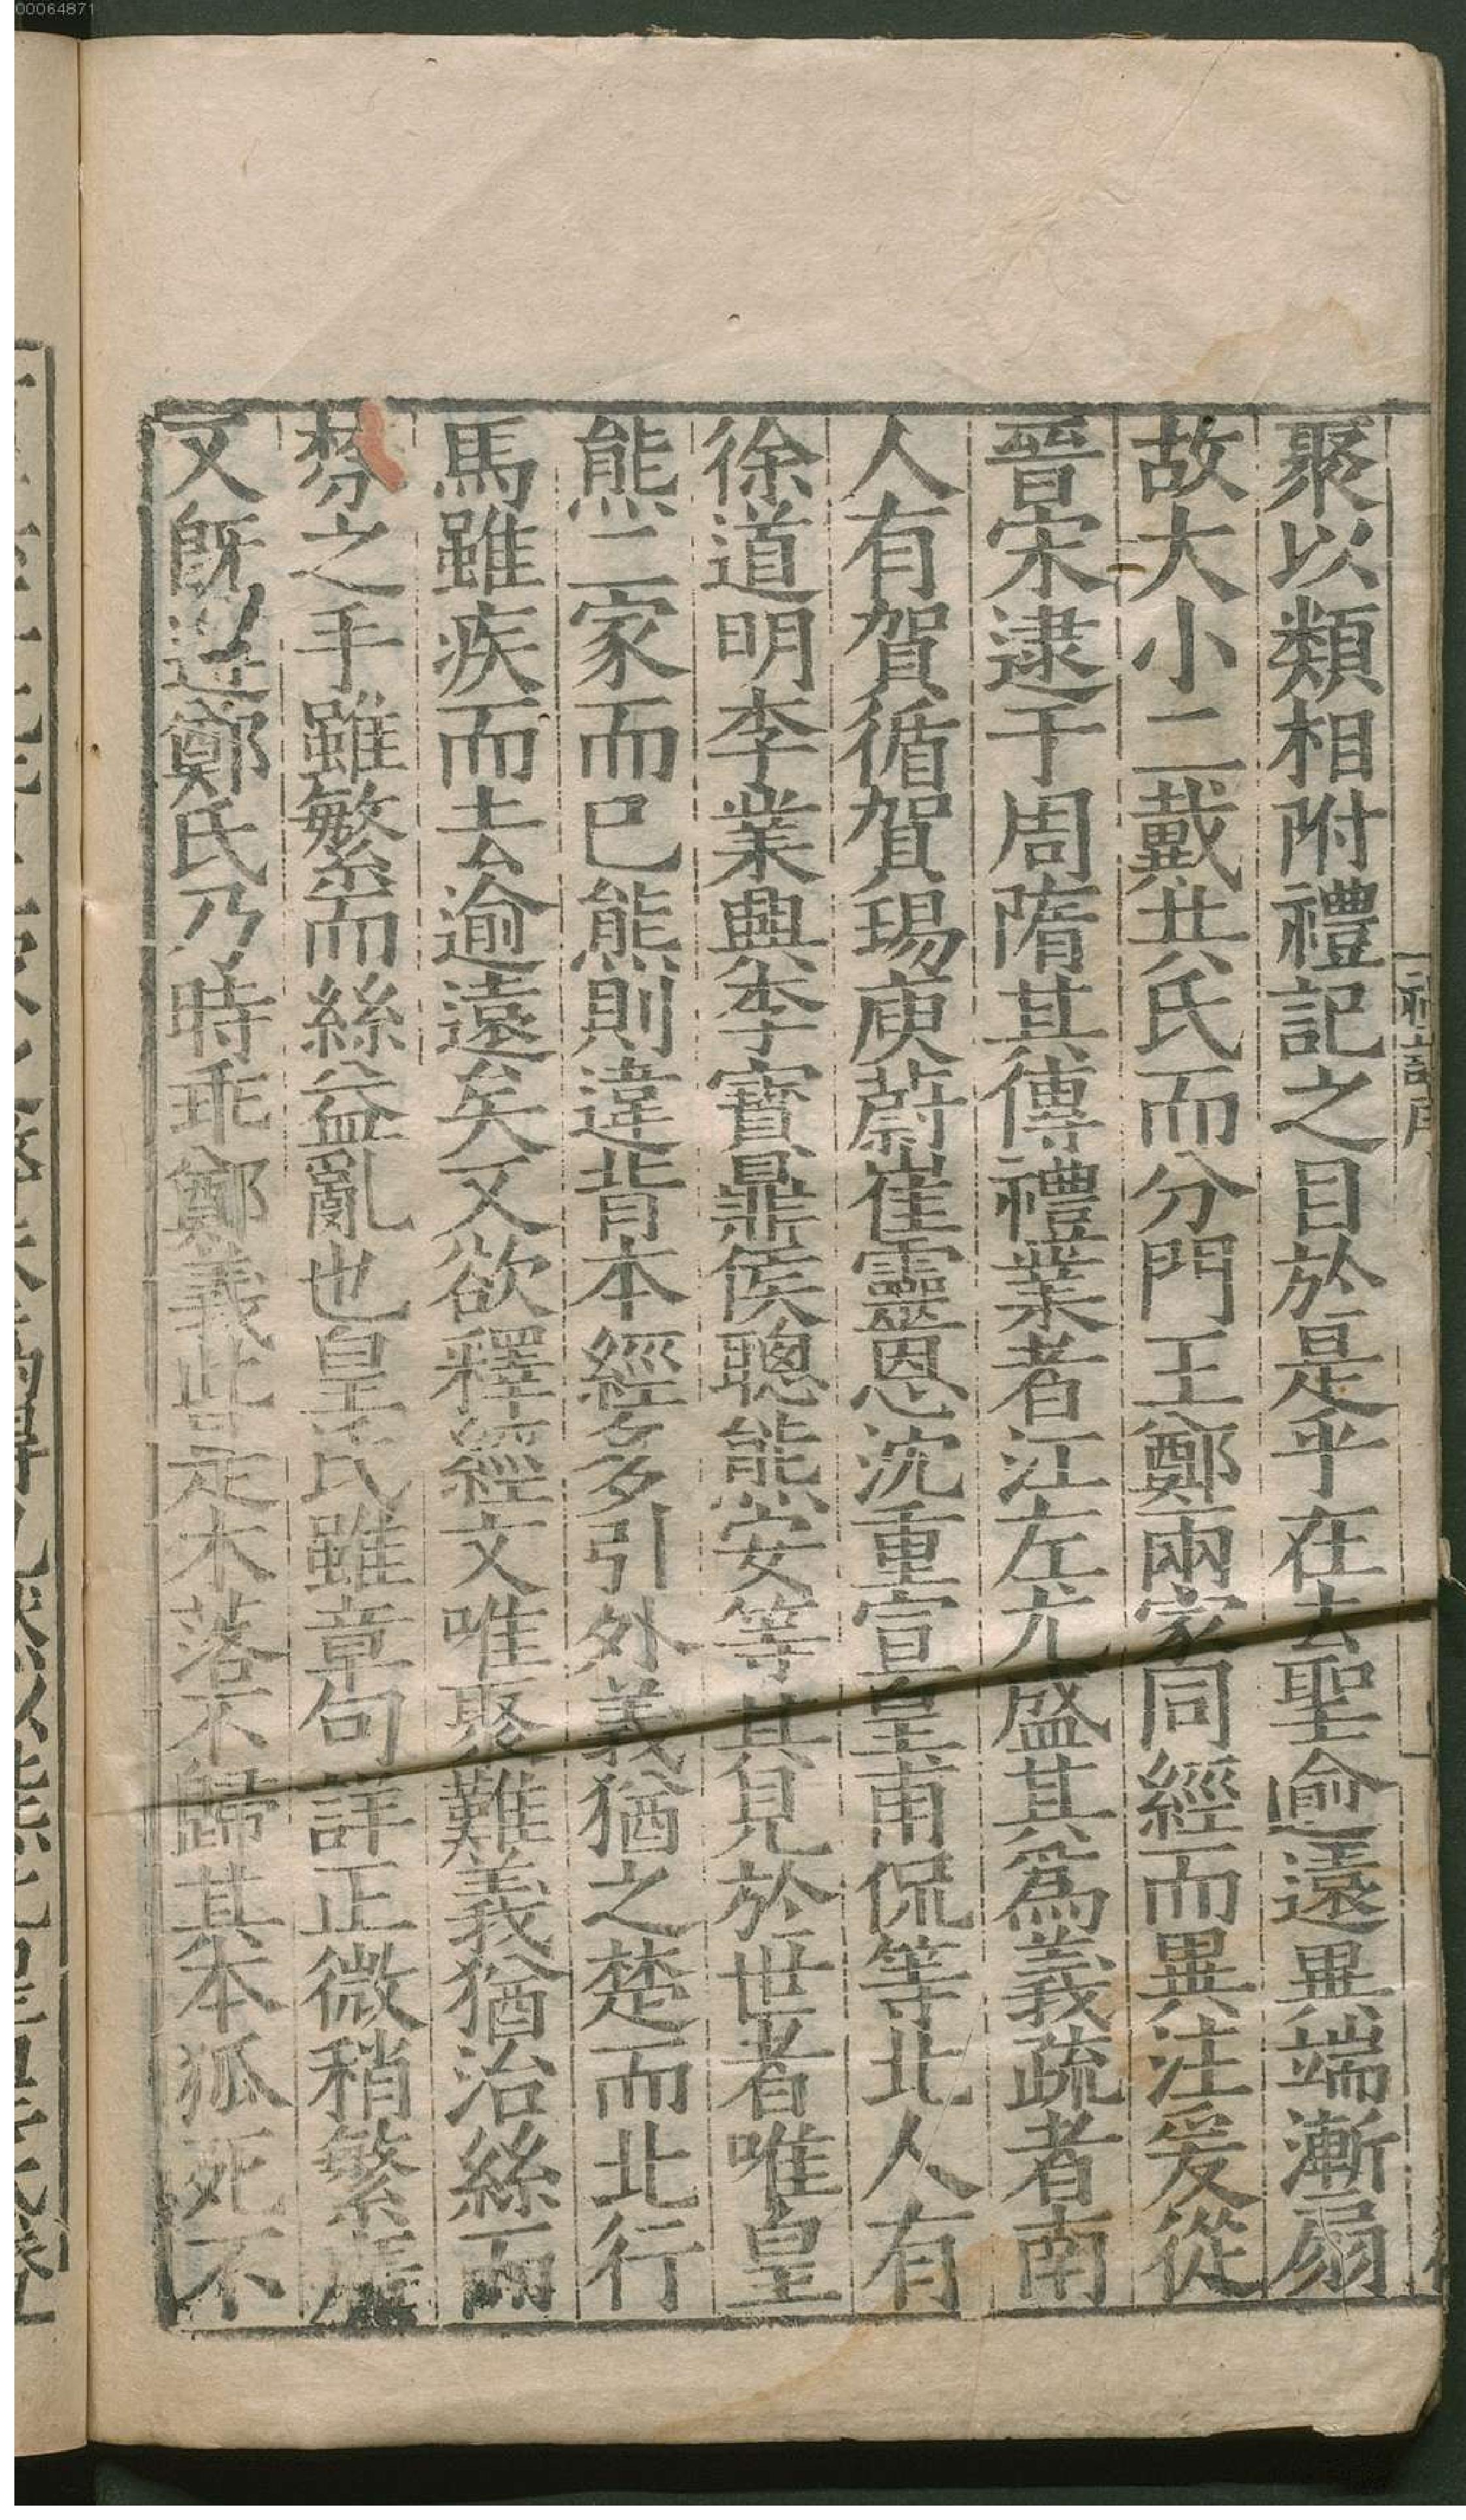 00064871
禮記序
聚以類相附禮記之目於是乎在去聖逾遠異端漸扇
故大小二戴共氏而分門王鄭兩家同經而異注爰從
晉宋逮于周隋其傳禮業者江左尤盛其爲義疏者南
人有賀循賀瑒庾蔚崔靈恩沈重宣皇甫侃等北人有
徐道明李業興李寶鼎侯聰熊安等其見於世者唯皇
熊二家而已熊則違背本經多引外義猶之楚而北行
馬雖疾而去逾遠矣又欲釋經文唯聚難義猶治絲而
棼之手雖繁而絲益亂也皇氏雖章句詳正微稍繁廣
又旣遵鄭氏乃時乖鄭義此是木落不歸其本狐死不